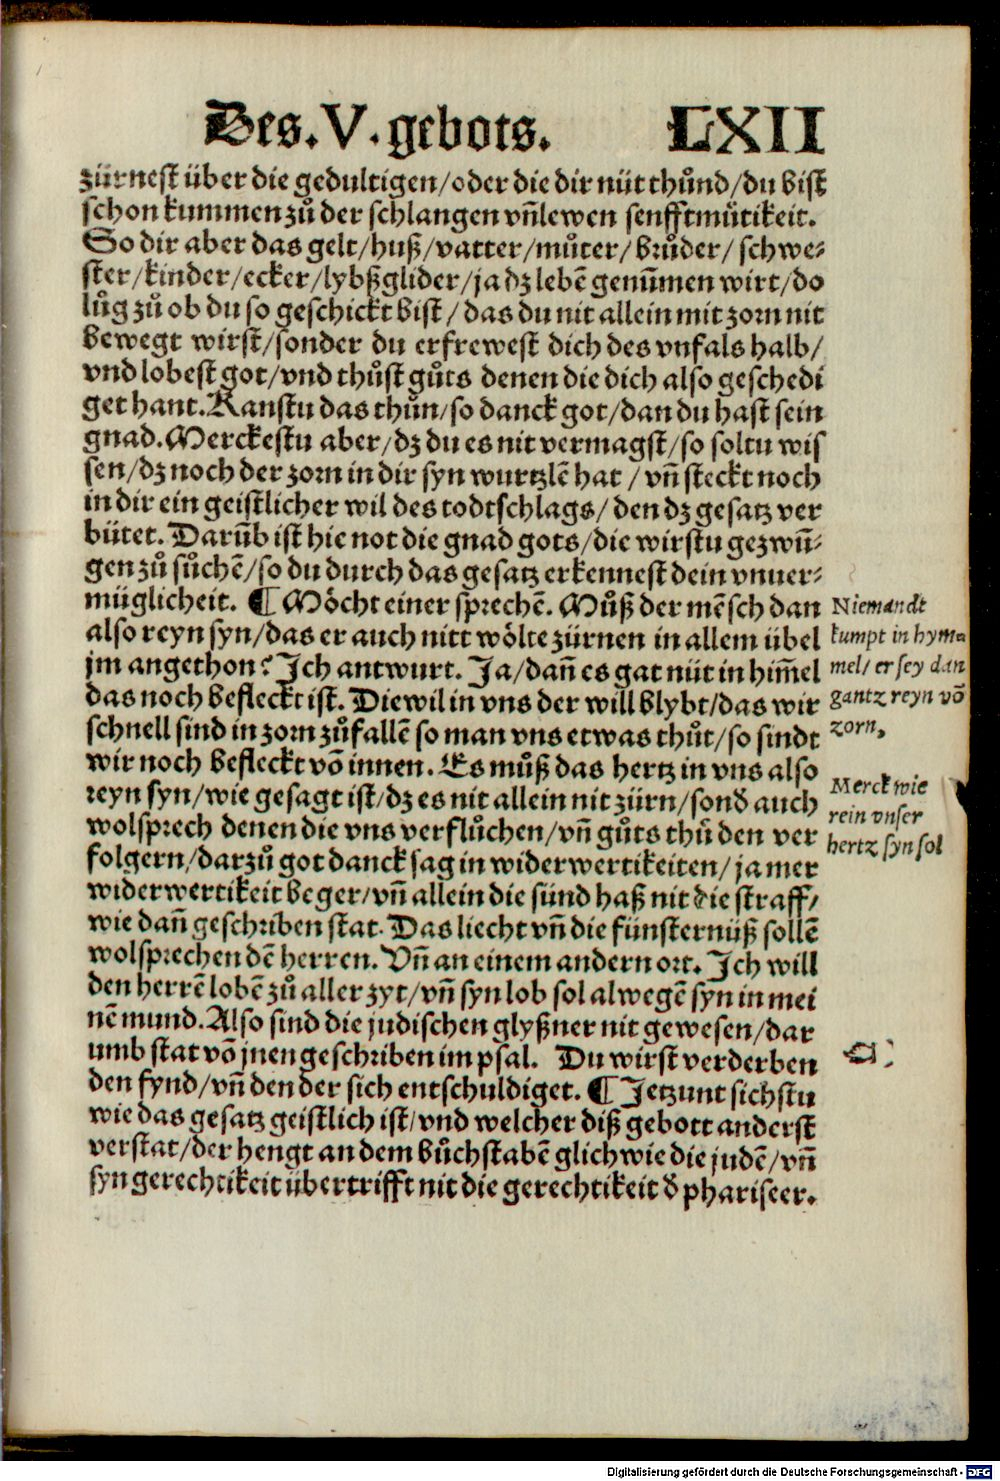 Des. V. gebots. LXII
zürnest über die gedultigen/oder die dir nüt thůnd/du bist
schon kummen zů der schlangen vn̄ lewen senfftmütikeit.
So dir aber das gelt/huß/vatter/můter/brůder/schwe⸗
ster/kinder/ecker/lybßglider/ja dz lebē genūmen wirt/do
lůg zů ob du so geschickt bist/ das du nit allein mit zorn nit
bewegt wirst/sonder du erfrewest dich des vnfals halb/
vnd lobest got/vnd thůst gůts denen die dich also geschedi
get hant. Kanstu das thůn/so danck got/dan du hast sein
gnad. Merckestu aber/dz du es nit vermagst/so soltu wis
sen/dz noch der zorn in dir syn wurtzlē hat / vn̄ steckt noch
in dir ein geistlicher wil des todtschlags/ den dz gesatz ver
bütet. Darūb ist hie not die gnad gots/die wirstu gezwū⸗
gen zů sůchē/so du durch das gesatz erkennest dein vnuer⸗
müglicheit. ¶ Möcht einer sprechē. Můß der mēsch dan
also reyn syn/das er auch nitt wölte zürnen in allem übel
jm angethon? Ich antwurt. Ja/dan̄ es gat nüt in him̄el
das noch befleckt ist. Diewil in vns der will blybt/das wir
schnell sind in zorn zůfallē so man vns etwas thůt/so sindt
wir noch befleckt vō innen. Es můß das hertz in vns also
reyn syn/wie gesagt ist/dz es nit allein nit zürn/sond̄ auch
wolsprech denen die vns verflůchen/vn̄ gůts thů den ver
folgern/darzů got danck sag in widerwertikeiten/ja mer
widerwertikeit beger/vn̄ allein die sünd haß nit die straff/
wie dan̄ geschriben stat. Das liecht vn̄ die fünsternüß sollē
wolsprechen dē herren. Vn̄ an einem andern ort. Ich will
den herrē lobē zů aller zyt/vn̄ syn lob sol alwegē syn in mei
nē mund. Also sind die judischen glyßner nit gewesen/dar
umb stat vō jnen geschriben im psal. Du wirst verderben
den fynd/vn̄ den der sich entschuldiget. ¶ Jetzunt sichstu
wie das gesatz geistlich ist/vnd welcher diß gebott anderst
verstat/der hengt an dem bůchstabē glich wie die judē/vn̄
syn gerechtikeit übertrifft nit die gerechtikeit d̄ phariseer.
Niemandt
kumpt in hym⸗
mel/ er sey dan
gantz reyn vō
zorn.
Merck wie
rein vnser
hertz syn sol
Digitalisierung gefördert durch die Deutsche Forschungsgemeinschaft - DFG